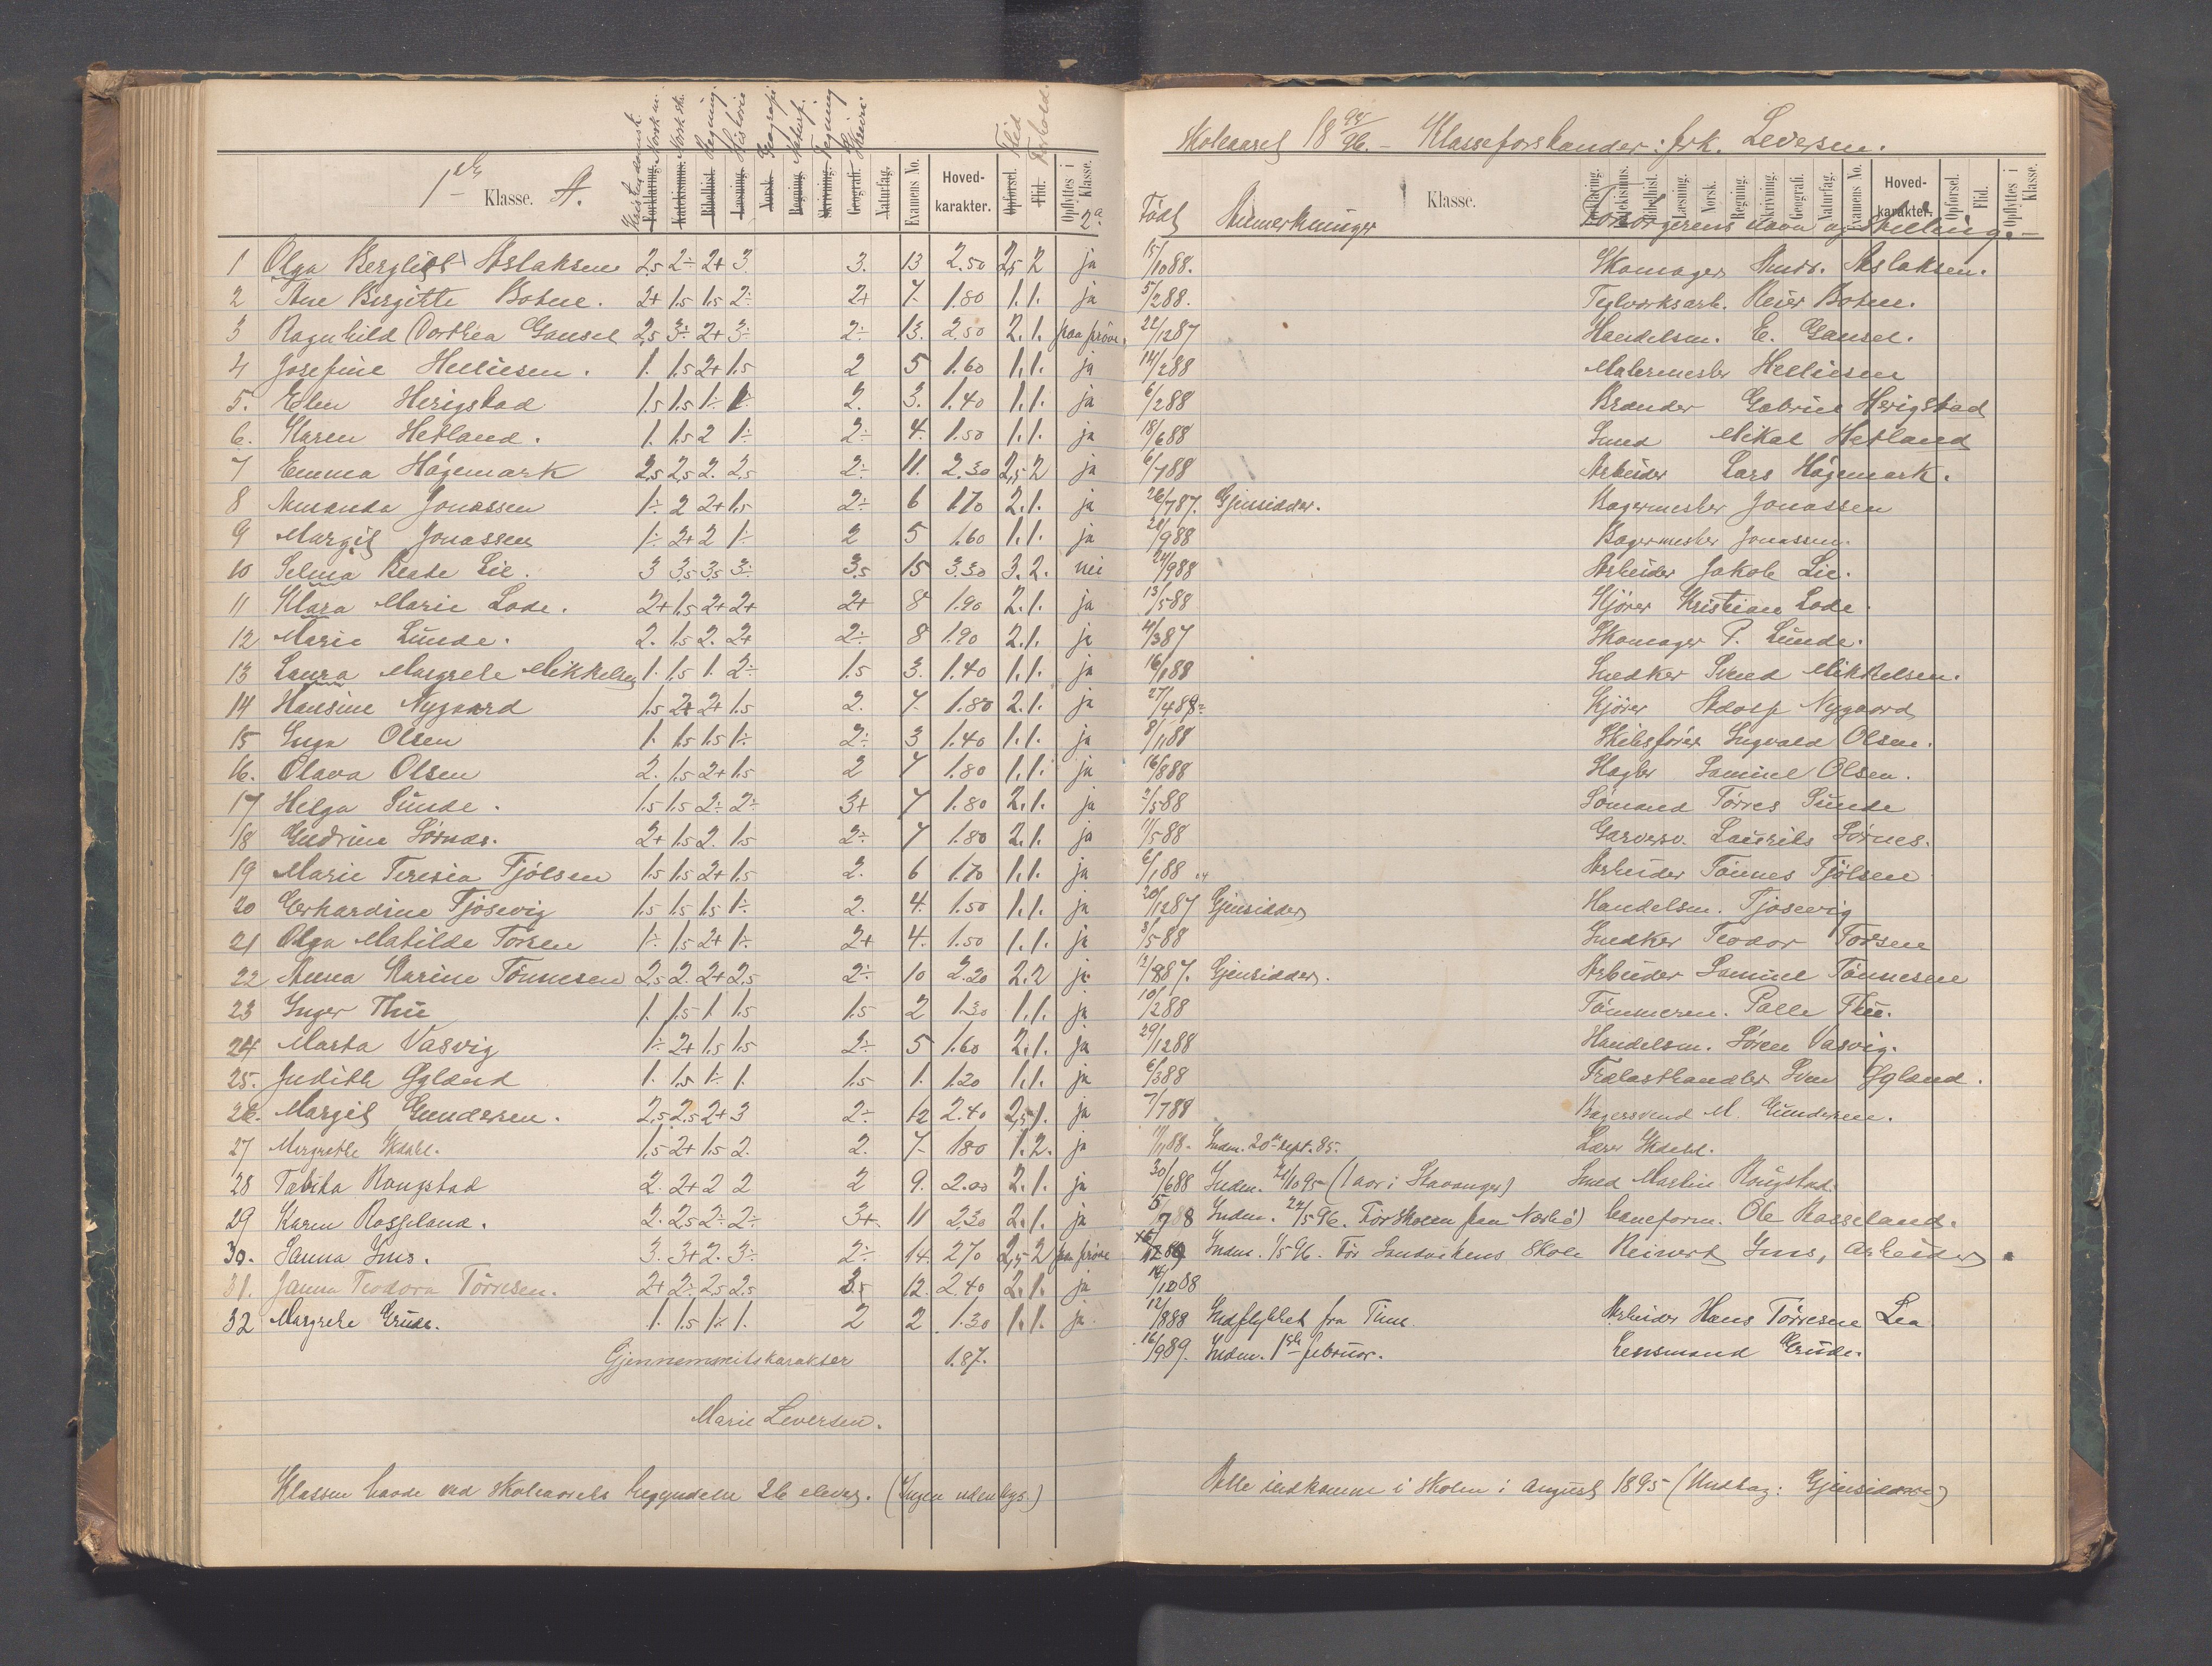 1ste Klasse. A.
Kristendomsk. Norsk m. Norsk sk. Regning. Historie Geografi Naturf. Tegning Skrivn. Flid Forhold.
Forklaring. Katekismus. Bibelhist. Læsning. Norsk Regning Skrivning. Geografi. Naturfag. Examens No. Hoved-karakter. Opførsel. Flid. Opflyttes i 2a Klasse.
1 Olga Bergliot Aslaksen 2,5 2÷ 2+ 3 3. 13 2.50 2,5 2 ja
2 Ane Birgitte Botne. 2+ 1.5 1.5 2÷ 2+ 7. 1.80 1. 1. ja
3 Ragnhild Dorthea Gausel 2,5 3÷ 2+ 3÷ 2÷ 13. 2.50 2. 1. paa prøve.
4 Josefine Helliesen. 1. 1.5 2+ 1.5 2 5 1.60 1. 1. ja
5. Elen Herigstad 1.5 1.5 1÷ 1÷ 2. 3. 1.40 1. 1. ja
6. Karen Hetland. 1. 1.5 2 1÷ 2÷ 4. 1.50 1. 1. ja
7 Emma Hågemark 2,5 2,5 2. 2,5 2÷ 11. 2.30 2,5 2 ja
8 Amanda Jonassen 1÷ 2 2+ 1.5 2÷ 6 1.70 2. 1. ja
9 Margit Jonassen 1÷ 2+ 2 1÷ 2 5 1.60 1. 1. ja
10 Selma Beate Lie. 3 3,5 3,5 3÷ 3,5 15 3.30 3. 2. nei
11 Klara Marie Lode. 2+ 1.5 2+ 2+ 2+ 8 1.90 2. 1. ja
12 Marie Lunde. 2. 1.5 2. 2+ 2÷ 8 1.90 2. 1. ja
13 Laura Margrete Mikkelsen 1. 1.5 1. 2÷ 1.5 3. 1.40 1. 1. ja
14 Hansine Nygaard 1.5 2+ 2+ 1.5 2. 7. 1.80 2. 1. ja
15 Inga Olsen 1. 1.5 1.5 1÷ 2÷ 3 1.40 1. 1. ja
16. Olava Olsen 2. 1.5 2+ 1.5 2 7 1.80 1. 1. ja
17 Helga Sunde. 1.5 1.5 2÷ 2÷ 3+ 7 1.80 2. 1. ja
18 Gudrine Sørnes. 2+ 1.5 2. 1.5 2÷ 7 1.80 2. 1. ja
19 Marie Teresia Tjølsen 1.5 1.5 2+ 1.5 2. 6 1.70 1. 1. ja
20 Gerhardine Tjosevig 1.5 1.5 1.5 1÷ 2. 4. 1.50 1. 1. ja
21 Olga Matilde Torsen 1÷ 1.5 2+ 1÷ 2+ 4. 1.50 1. 1. ja
22 Anna Karine Tønnesen 2,5 2. 2+ 2,5 2÷ 10 2.20 2. 2 ja
23 Inger Thu 1. 1.5 1 1.5 1.5 2 1.30 1. 1. ja
24 Marta Vasvig 1÷ 2+ 1.5 1.5 2÷ 5 1.60 2. 1. ja
25. Judith Ygland 1. 1.5 1÷ 1. 1.5 1. 1.20 1. 1. ja
26. Margit Gundersen. 2,5 2,5 2+ 3 2÷ 12 2.40 2,5 1. ja
27 Margrethe Skaael. 1.5 2+ 1.5 2. 2. 7. 1.80 1. 2. ja
28 Tabita Rongstad 2. 2+ 2 2 2 9. 2.00 2. 1. ja
29 Karen Rosseland. 2. 2,5 2÷ 2÷ 3+ 11 2.30 2. 1. ja
30. Sanna Ims. 3. 3+ 2. 3÷ 2÷ 14. 2.70 2,5 2 paa prøve
31. Janna Teodora Tørresen. 2+ 2÷ 2,5 2,5 3,5 12. 2.40 2. 1. ja
32 Margrete Grude. 1. 1.5 1÷ 1. 2 2 1.30 1. 1. ja.
Gjennemsnitskarakter 1.87.
Marie Leversen.
Klassen havde ved skoleaarets begyndelse 26 elever. (Ingen udenbys)
Skoleaaret 18 95/96. — Klasseforstander: frk. Leversen.
Klasse.
Forklaring. Katekismus. Bibelhist. Læsning. Norsk. Regning. Skrivning. Geografi. Naturfag. Examens No. Hoved-karakter. Opførsel. Flid. Opflyttes i Klasse.
Født Anmerkninger Forsørgerens navn og stilling.
15/10 88. Skomager Andr. Aslaksen.
5/2 88. Teglverksarb. Reier Botne.
22/12 87 Handelsm. E. Gausel.
14/2 88 Malermester Helliesen
6/2 88 Brænder Gabriel Herigstad
18/6 88 Smed Mikal Hetland
6/7 88 Arbeider Lars Hågemark.
26/7 87. Gjensidder. Bagermester Jonassen
28/9 88 Bagermester Jonassen.
24/9 88 Arbeider Jakob Lie.
13/5 88 Kjører Kristian Lode.
4/3 87 Skomager P. Lunde.
16/1 88 Snedker Svend Mikkelsen.
27/4 88 Kjører Adolf Nygaard
8/1 88 Skibsfører Ingvald Olsen.
16/8 88 Hagler Samuel Olsen.
2/5 88 Sømand Tørres Sunde
11/5 88 Garversv. Laurits Sørnes.
6/1 88 Arbeider Tønnes Tjølsen
20/12 87 Gjensidder Handelsm. Tjosevig
8/5 88 Snedker Teodor Torsen
12/8 87. Gjensidder. Arbeider Samuel Tønnesen
10/2 88 Tømmerm. Palle Thu.
29/12 88 Handelsm. Sören Vasvig.
6/3 88 Trælasthandler Sven Ygland.
7/7 88 Bagersvend M. Gundersen.
11/1 88. Indm. 20de sept. 95. Lærer Skaael.
30/6 88 Indm. 21/10 95 (1 aar i Stavanger) Smed Martin Rongstad.
5/7 88 Indm. 22/5 96. Før skolen paa Nærbø) Baneform. Ole Rosseland.
Indm. 1/5 96. Før Sandvikens skole Reinert Ims, Arbeider
14/12 88
12/8 88 Indflyttet fra Time. Arbeider Hans Tørresen Lea
16/9 89. Indm. 1ste februar. Lensmand Grude.
Alle indkomne i skolen i august 1895 (Undtag: Gjensiddere)